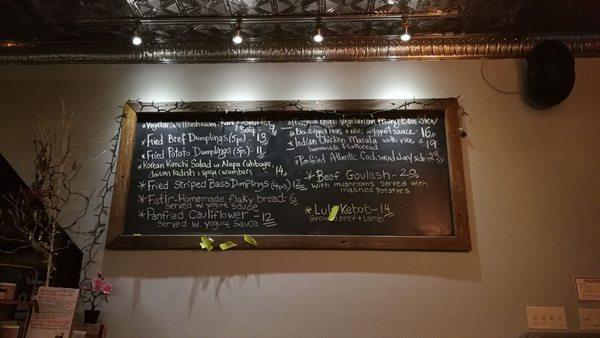 *Vegetarian Mushroom
Soup 9
*Fried Beef Dumplings (5pcs) 13
*Fried Potato Dumplings (5pcs) 11
*Korean Kimchi Salad w. Napa Cabbage,
daikon radish & spicy cucumbers 14
*Fried Striped Bass Dumplings (4pcs) 12
*Fatir-Homemade flaky bread: 6
Served w. yogurt Sauce
*Panfried Cauliflower - 12
Served w. Yogurt Sauce
Vegetarian Bean Stew
w. yogurt sauce 16
*Indian Chicken Masala with rice & 19
homemade flatbread
*Panfried Atlantic Cod,
*Beef Goulash - 20
with mushrooms served with
mashed Potatoes
*Lula Kebob - 14
Ground beef + Lamb